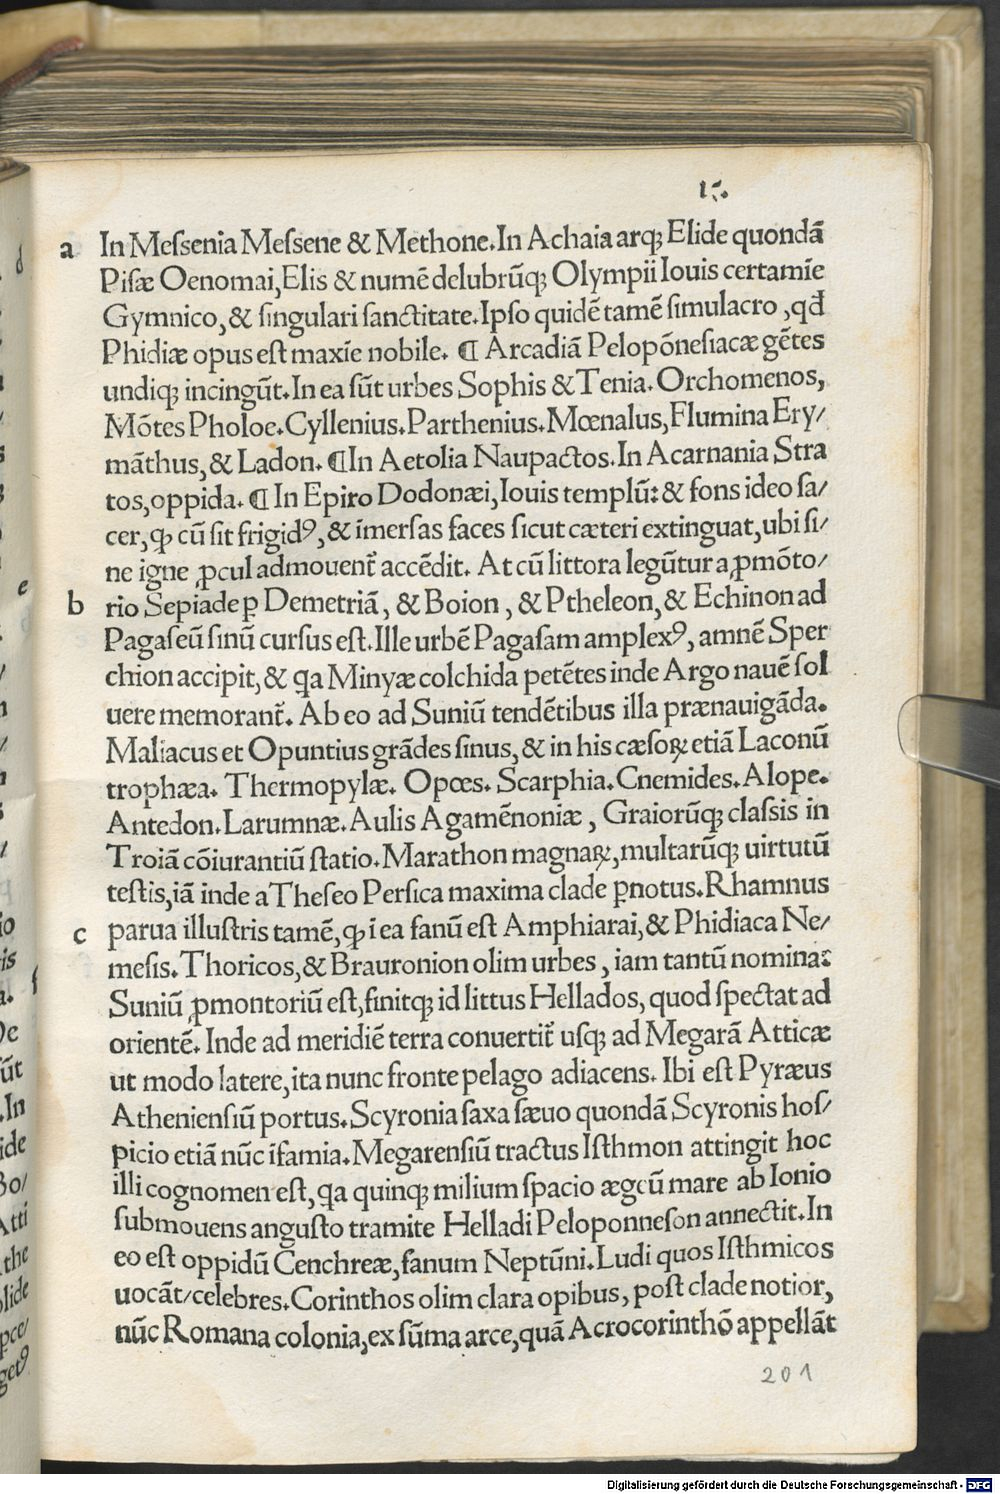 15.
a In Meſsenia Meſsene & Methone. In Achaia atq; Elide quondã
Piſæ Oenomai, Elis & numẽ delubrũq; Olympii Iouis certamĩe
Gymnico, & ſingulari ſanctitate. Ipſo quidẽ tamẽ ſimulacro, qđ
Phidiæ opus eſt maxĩe nobile. ¶ Arcadiã Pelopõneſiacæ gẽtes
undiq; incingũt. In ea ſũt urbes Sophis & Tenia. Orchomenos,
Mõtes Pholoe. Cyllenius. Parthenius. Mœnalus, Flumina Ery/
mãthus, & Ladon. ¶ In Aetolia Naupactos. In Acarnania Stra
tos, oppida. ¶ In Epiro Dodonæi, Iouis templũ: & fons ideo ſa/
cer, ꝙ cũ ſit frigidꝰ, & ĩmerſas faces ſicut cæteri extinguat, ubi ſi/
ne igne ꝓcul admouent̃ accẽdit. At cũ littora legũtur a ꝓmõto/
b rio Sepiade ꝑ Demetriã, & Boion, & Ptheleon, & Echinon ad
Pagaſeũ ſinũ curſus eſt. Ille urbẽ Pagaſam amplexꝰ, amnẽ Sper
chion accipit, & qa Minyæ colchida petẽtes inde Argo nauẽ ſol
uere memorant̃. Ab eo ad Suniũ tendẽtibus illa prænauigãda.
Maliacus et Opuntius grãdes ſinus, & in his cæſoꝝ etiã Laconũ
trophæa. Thermopylæ. Opœs. Scarphia. Cnemides. Alope.
Antedon. Larumnæ. Aulis Agamẽnoniæ, Graiorũq; claſsis in
Troiã cõiurantiũ ſtatio. Marathon magnaꝝ, multarũq; uirtutũ
teſtis, iã inde a Theſeo Perſica maxima clade ꝑnotus. Rhamnus
c parua illuſtris tamẽ, ꝙ ĩ ea fanũ eſt Amphiarai, & Phidiaca Ne/
meſis. Thoricos, & Brauronion olim urbes, iam tantũ nomina:
Suniũ ꝓmontoriũ eſt, finitq; id littus Hellados, quod ſpectat ad
orientẽ. Inde ad meridiẽ terra conuertit̃ uſq; ad Megarã Atticæ
ut modo latere, ita nunc fronte pelago adiacens. Ibi eſt Pyræus
Athenienſiũ portus. Scyronia ſaxa ſæuo quondã Scyronis hoſ/
picio etiã nũc ĩfamia. Megarenſiũ tractus Iſthmon attingit hoc
illi cognomen eſt, qa quinq; milium ſpacio ægeũ mare ab Ionio
ſubmouens anguſto tramite Helladi Peloponneſon annectit. In
eo eſt oppidũ Cenchreæ, fanum Neptũni. Ludi quos Iſthmicos
uocãt/celebres. Corinthos olim clara opibus, poſt clade notior,
nũc Romana colonia, ex ſũma arce, quã Acrocorinthõ appellãt
201
Digitalisierung gefördert durch die Deutsche Forschungsgemeinschaft - DFG